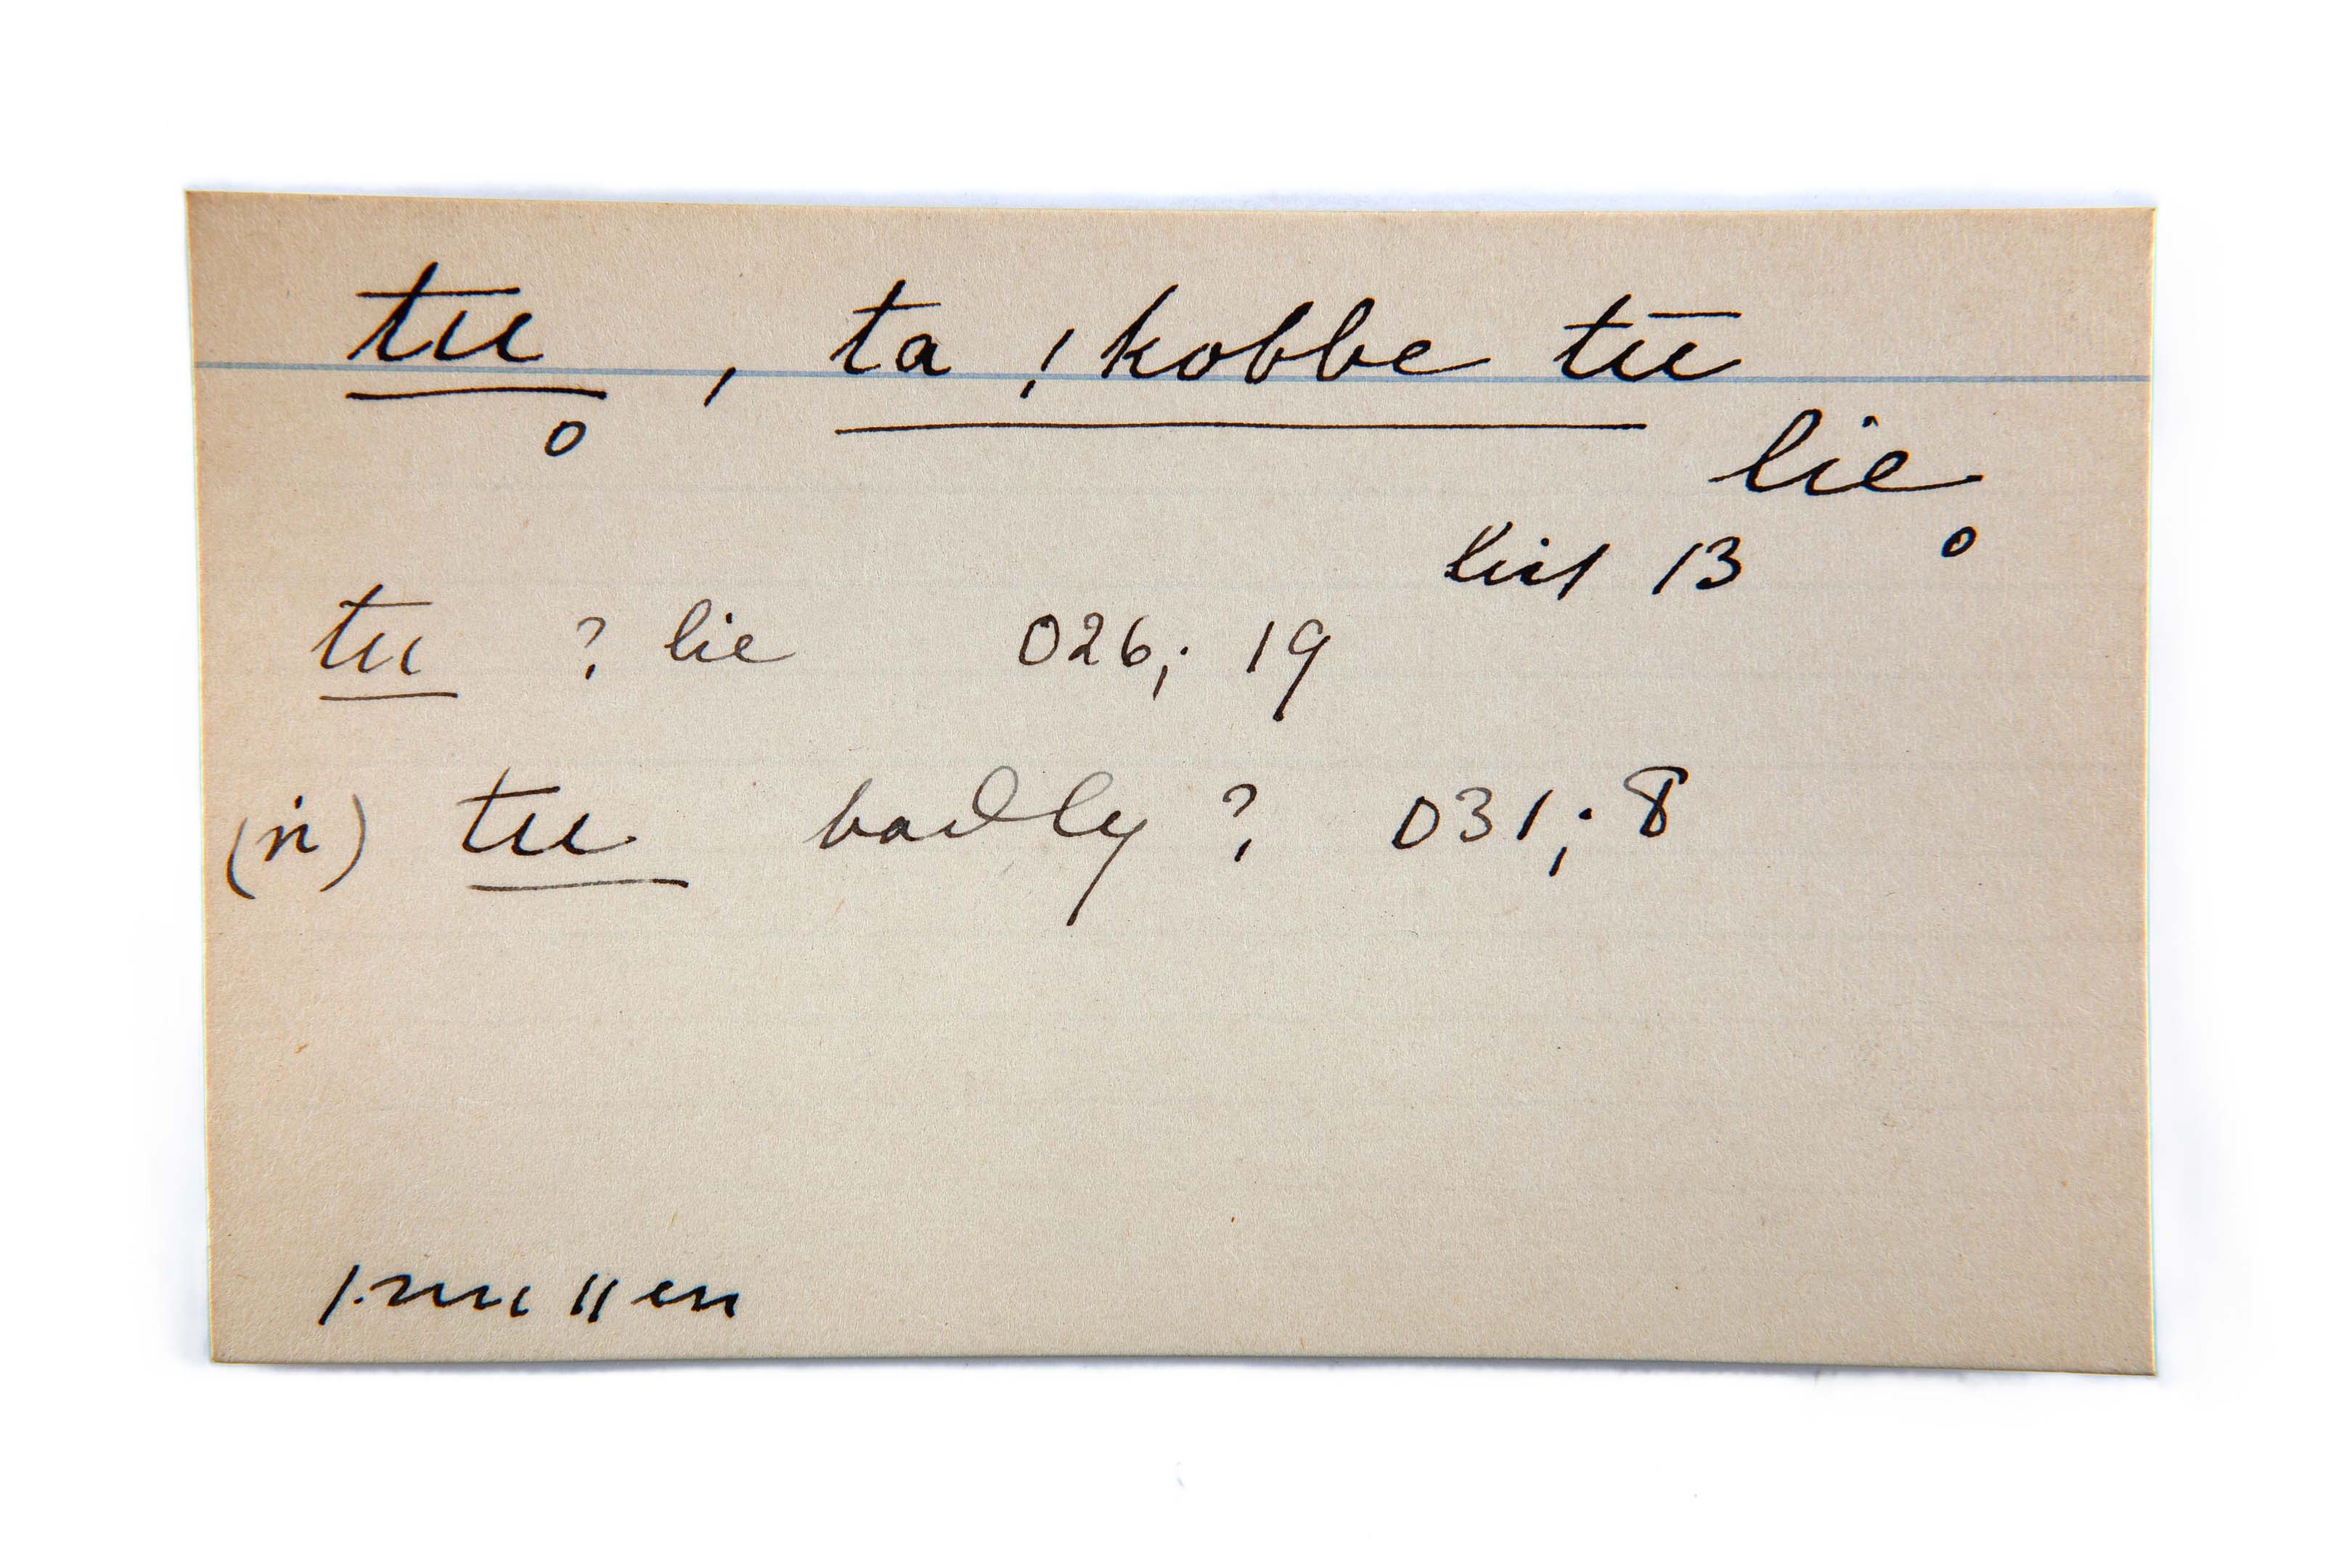 tu , ta !kobbe tu
lie
list 13
tu ? lie 026; 19
(n) tu badly ? 031; 8